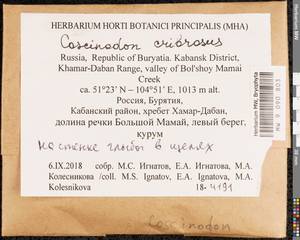 HERBARIUM HORTI BOTANICI PRINCIPALIS (MHA)
Coscinodon cribrosus
Russia, Republic of Buryatia. Kabansk District,
Khamar-Daban Range, valley of Bol'shoy Mamai
Creek
ca. 51°23' N – 104°51' E, 1013 m alt.
Россия, Бурятия,
Кабанский район, хребет Хамар-Дабан,
долина речки Большой Мамай, левый берег,
курум
на стенке глыбы в щелях
6.IX.2018 собр. М.С. Игнатов, Е.А. Игнатова, М.А.
Колесникова /coll. M.S. Ignatov, E.A. Ignatova, M.A.
Kolesnikova 18-4191
Coscinodon
Herbarium MW, Bryophyta
MW 9 090 803